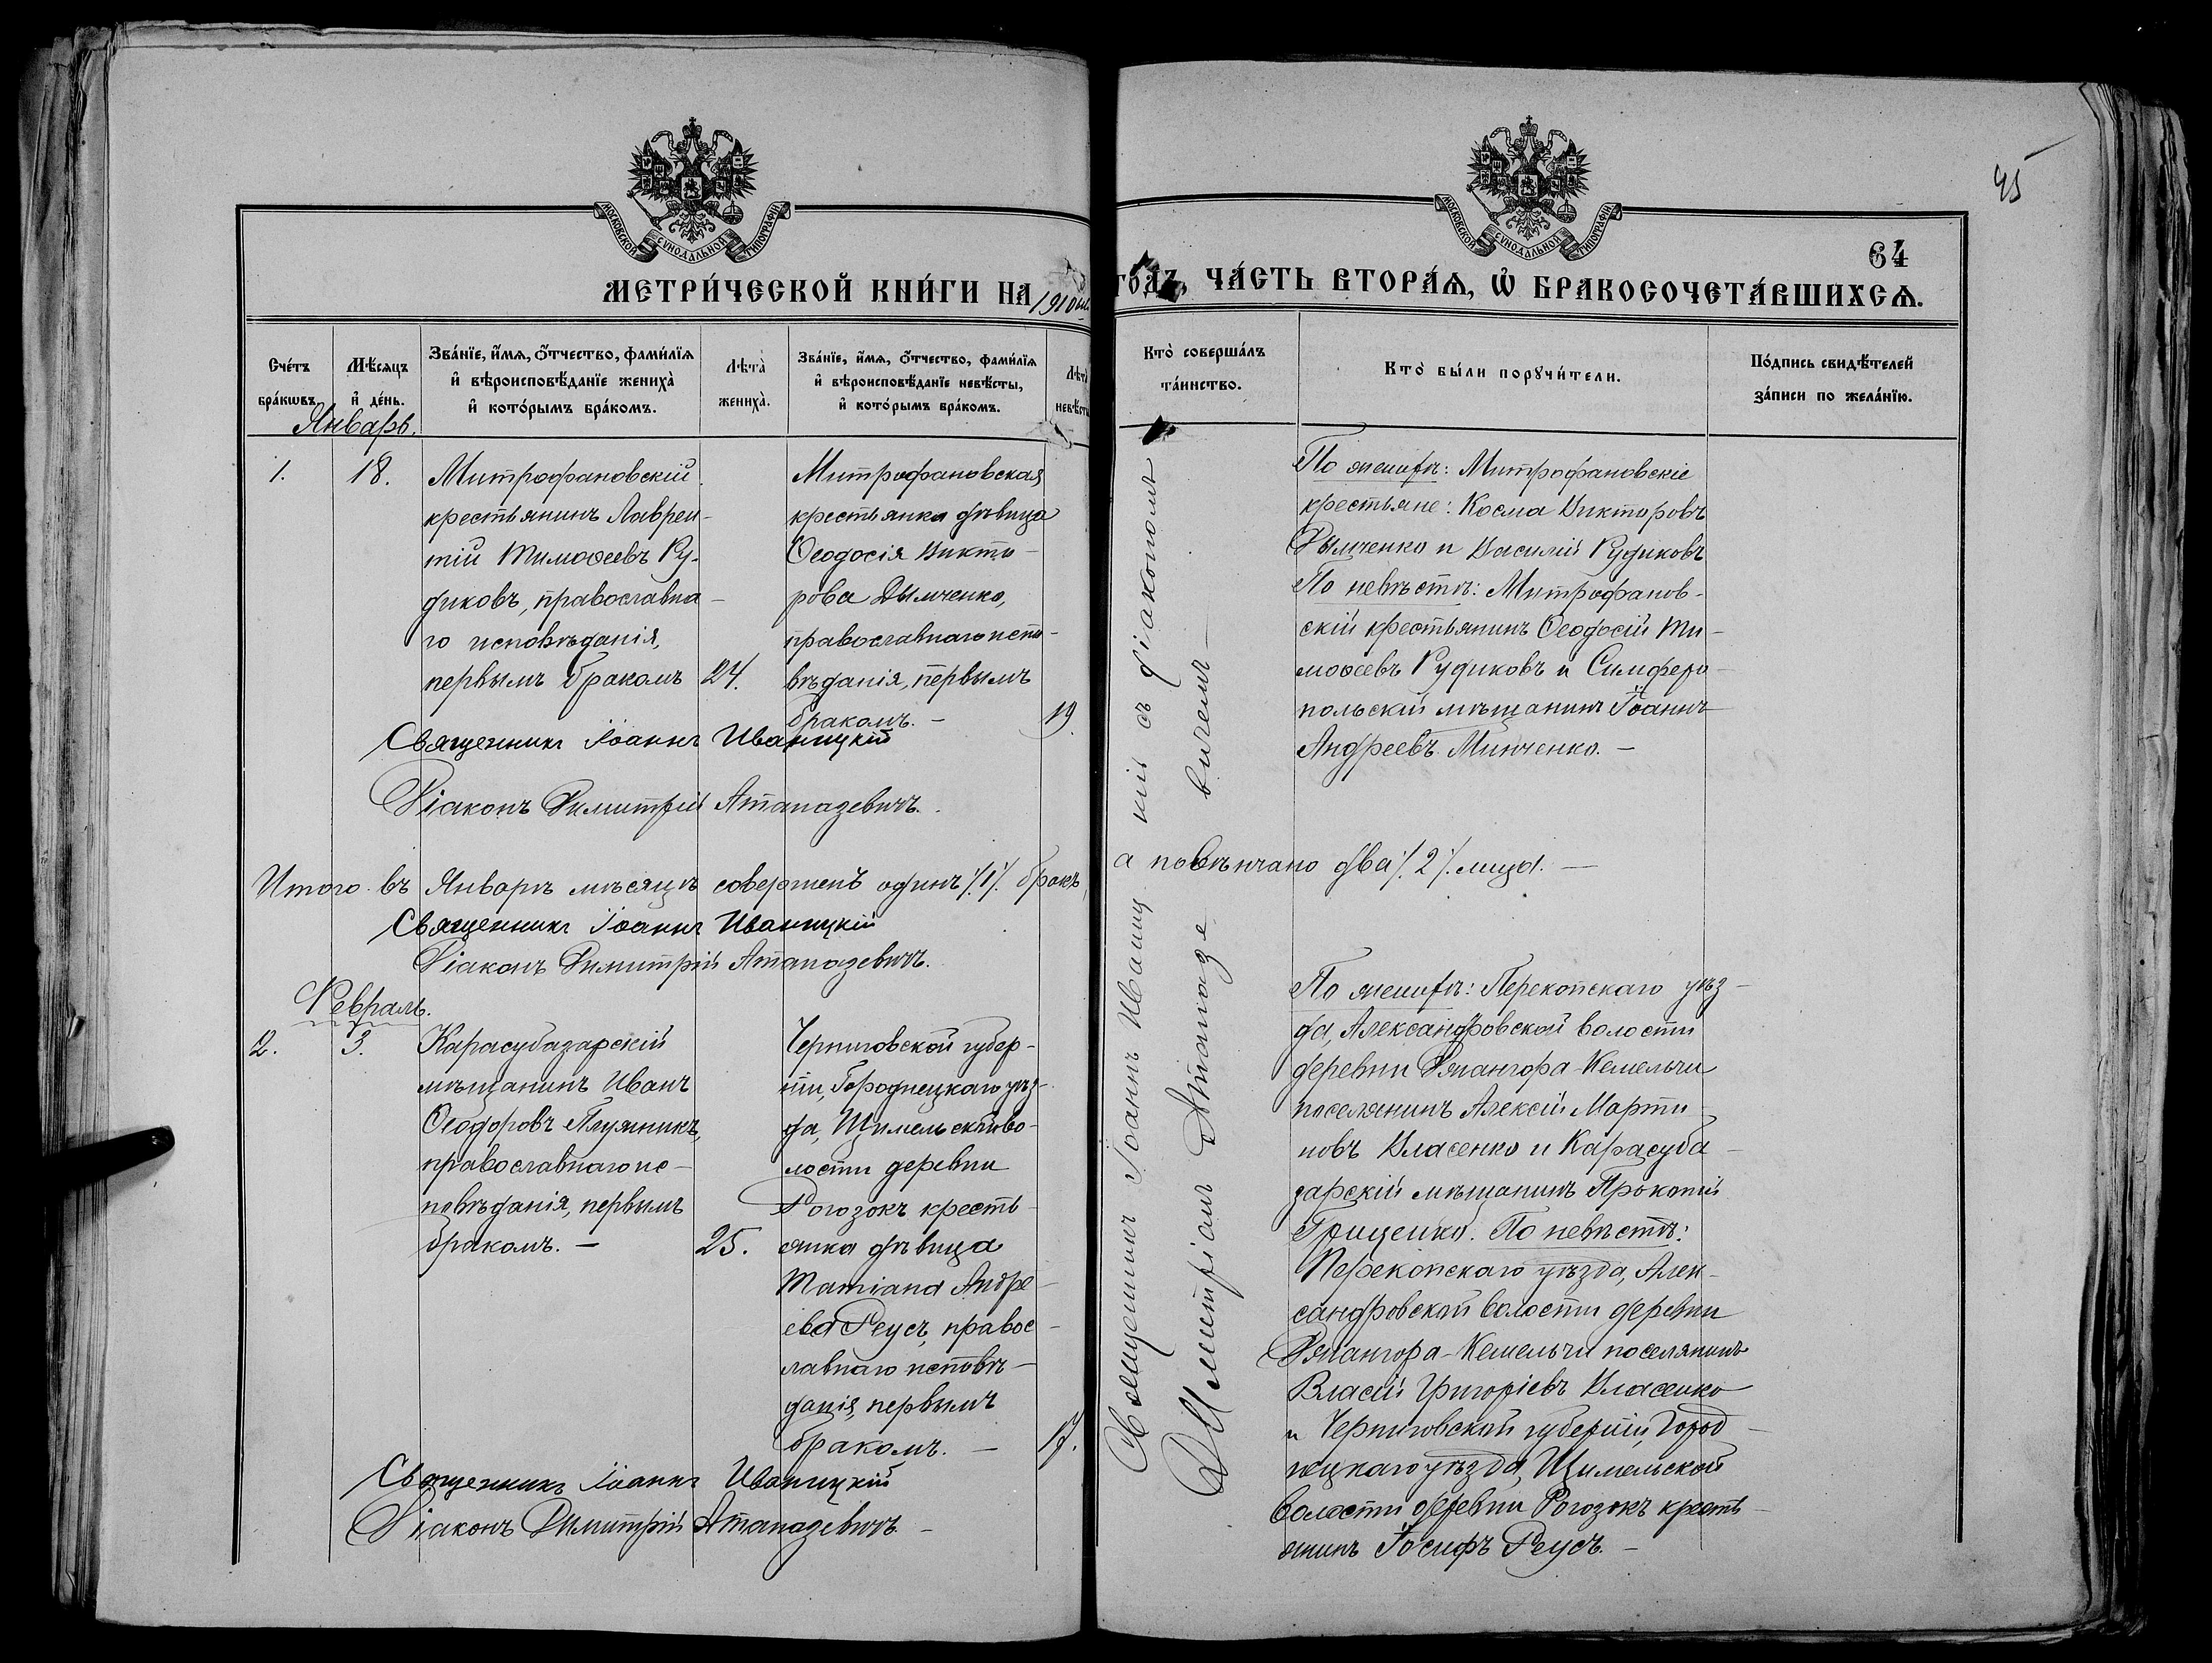 45
МОСКОВСКОЙ СѴНОДАЛЬНОЙ ТИПОГРАФІИ
МОСКОВСКОЙ СѴНОДАЛЬНОЙ ТИПОГРАФІИ
64
МЕТРИ́ЧЕСКОЙ КНИ́ГИ НА 1910
ГО́ДЪ, ЧА́СТЬ ВТОРА́Ѧ, Ѽ БРАКОСОЧЕТА́ВШИХСѦ.
Сче́тъ
бра́кѡвъ.
Мѣ́сяцъ
и҆ де́нь.
Зва́нїе, и҆́мѧ, ѻ҆́тчество, фами́лїѧ
и҆ вѣроисповѣ́данїе жениха̀
и҆ кото́рымъ бра́комъ.
Лѣ́та̀
жениха̀.
Зва́нїе, и҆́мѧ, ѻ҆́тчество, фами́лїѧ
и҆ вѣроисповѣ́данїе невѣ́сты,
и҆ кото́рымъ бра́комъ.
Лѣта̀
невѣ́сты
Кто̀ соверша́лъ
та́инство.
Кто̀ бы́ли порꙋчи́тели.
По́дпись свидѣ́телей
за́писи по жела́нїю.
Январь.
1.
18.
Митрофановскій
крестьянинъ Лаврен-
тій Тимоѳеевъ Ру-
диковъ, православна-
го исповѣданія,
первымъ бракомъ
24.
Митрофановская
крестьянка дѣвица
Ѳеодосія Викто-
рова Дымченко,
православнаго испо-
вѣданія, первымъ
бракомъ. —
19.
Священникъ Іоаннъ Иваницкій
Діаконъ Димитрій Атаназевичъ.
По женихѣ: Митрофановскіе
крестьяне: Косма Викторовъ
Дымченко и Василій Рудиковъ
По невѣстѣ: Митрофанов-
скій крестьянинъ Ѳеодосій Ти-
моѳеевъ Рудиковъ и Симферо-
польскій мѣщанинъ Іоаннъ
Андреевъ Минченко. —
Итого въ Январѣ мѣсяцѣ совершенъ одинъ /1/ бракъ,
а повѣнчано два /2/ лица. —
Священникъ Іоаннъ Иваницкій
Діаконъ Димитрій Атаназевичъ.
Февраль.
2.
3.
Карасубазарскій
мѣщанинъ Иванъ
Ѳеодоровъ Плужникъ,
православнаго ис-
повѣданія, первымъ
бракомъ. —
25.
Черниговской губер-
ніи, Городнецкаго уѣз-
да, Щимельской во-
лости деревни
Рогозокъ кресть-
янка дѣвица
Татіана Андре-
ева Реусъ, правос-
лавнаго исповѣ-
данія, первымъ
бракомъ. —
17.
Священникъ Іоаннъ Иваницкій
Діаконъ Димитрій Атаназевичъ. —
Священникъ Іоаннъ Иваницкій съ діакономъ
Димитріемъ Атаназевичемъ —
По женихѣ: Перекопскаго уѣз-
да, Александровской волости
деревни Джангора-Кемельчи
поселянинъ Алексій Марти-
новъ Власенко и Карасуба-
зарскій мѣщанинъ Прокопій
Грищенко. По невѣстѣ:
Перекопскаго уѣзда, Алек-
сандровской волости деревни
Джангора-Кемельчи поселянинъ
Власій Григоріевъ Власенко
и Черниговской губерніи, Город-
нецкаго уѣзда, Щимельской
волости деревни Рогозокъ кресть-
янинъ Іосифъ Реусъ. —